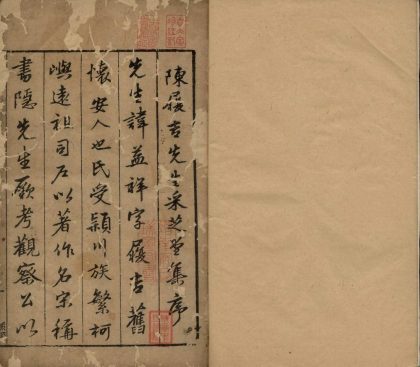 陳履吉先生采芝堂集序
先生諱益祥字履吉舊
懷安人也氏受潁川族繁柯
嶼遠祖司左以著作名宋稱
書隱先生厥考觀察公以